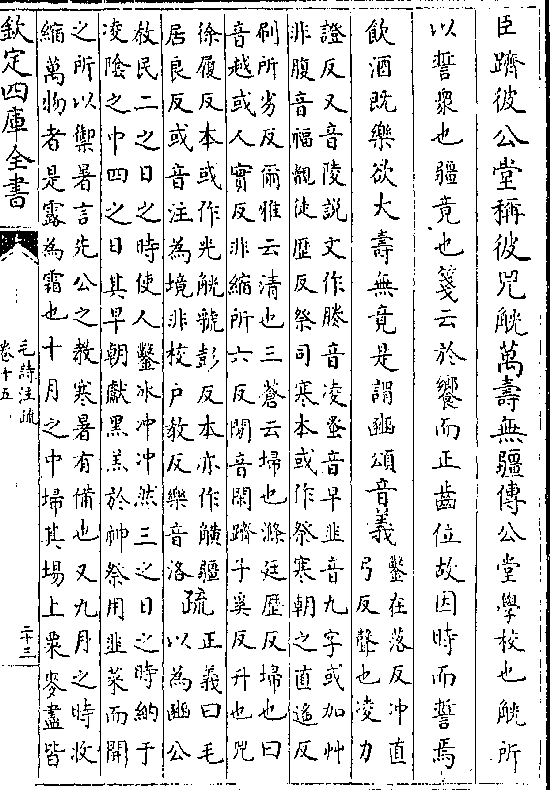 臣躋彼公堂稱彼兕觥萬壽無疆傳公堂學校也觥所
以誓衆也疆竟也箋云於饗而正齒位故因時而誓焉
飲酒既樂欲大壽無竟是謂豳頌音義鑿在落反冲直
弓反聲也凌力
證反又音陵説文作勝音凌蚤音早韭音九字或加艸
非腹音福覿徒歴反祭司寒本或作祭寒朝之直遥反
刷所劣反爾雅云清也三蒼云埽也滌廷歴反埽也曰
音越或人實反非縮所六反閒音閑躋子奚反升也兕
徐履反本或作光觥虢彭反本亦作觵疆
居良反或音注為境非校户教反樂音洛
疏正義曰毛
以為豳公
敇民二之日之時使人鑿冰冲冲然三之日之時納于
凌陰之中四之日其早朝獻黑羔於神祭用韭菜而開
之所以禦暑言先公之教寒暑有備也又九月之時收
縮萬物者是露為霜也十月之中埽其場上粟麥盡皆
欽定四庫全書
毛詩注疏
卷十五
二十三